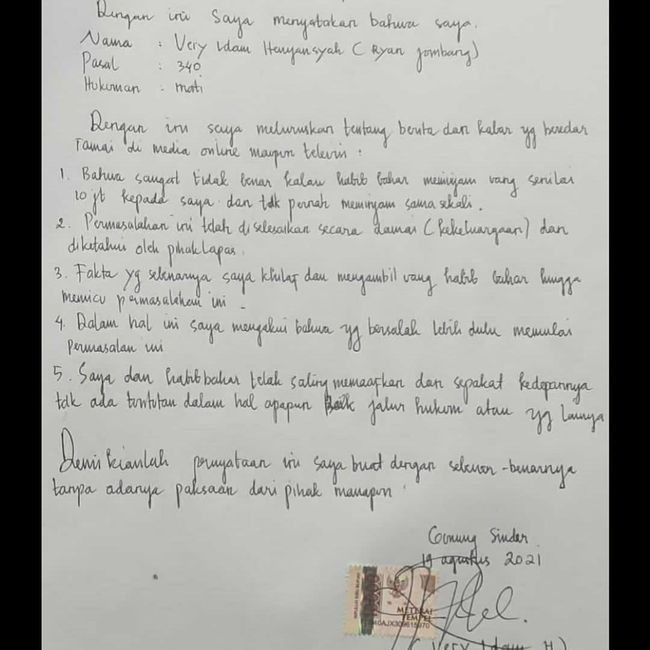 Dengan ini saya menyatakan bahwa saya.
Nama : Very Idam Henyansyah (Ryan Jombang)
Pasal : 340
Hukuman : mati
Dengan ini saya meluruskan tentang berita dan kabar yg beredar
ramai di media online maupun televisi :
1. Bahwa sangat tidak benar kalau habib bahar meminjam uang senilai
10 jt kepada saya dan tdk pernah meminjam sama sekali.
2. Permasalahan ini telah diselesaikan secara damai (kekeluargaan) dan
diketahui oleh pihak lapas.
3. Fakta yg sebenarnya saya khilaf dan mengambil uang habib bahar hingga
memicu permasalahan ini -
4. Dalam hal ini saya mengakui bahwa yg bersalah lebih dulu memulai
permasalan ini
5. Saya dan habib bahar telah saling memaafkan dan sepakat kedepannya
tdk ada tuntutan dalam hal apapun baik jalur hukum atau yg lainnya
Demikianlah pernyataan ini saya buat dengan sebenar-benarnya
tanpa adanya paksaan dari pihak manapun.
Gunung Sindur
19 agustus 2021
METERAI
TEMPEL
(Very Idam H)